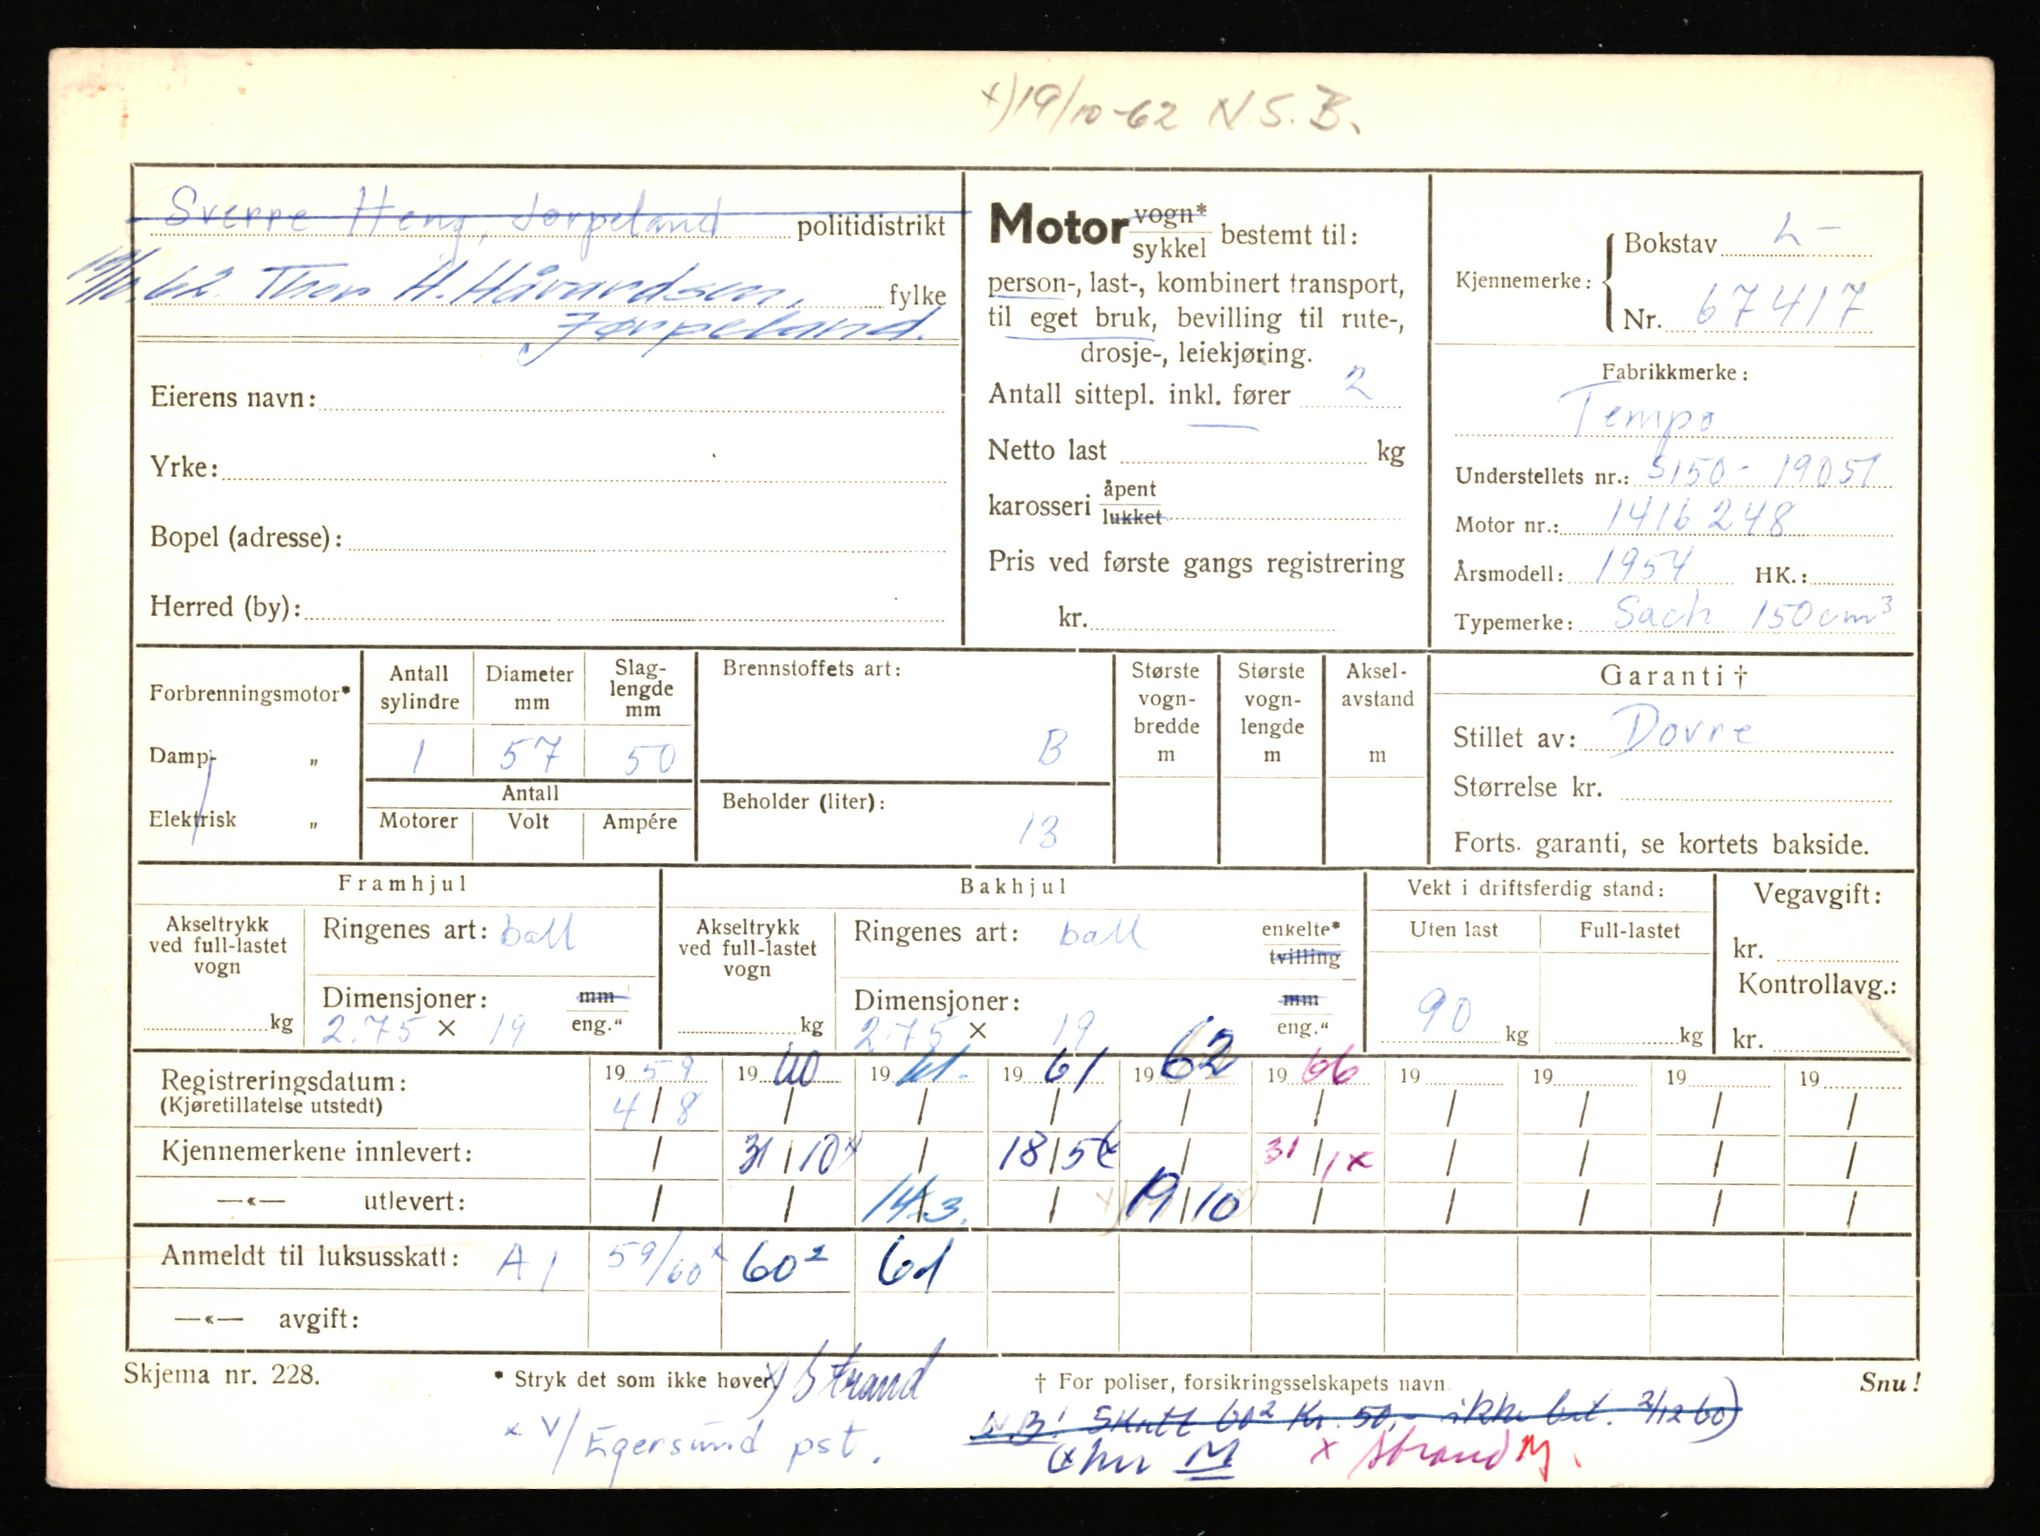 x) 19/10-62 N.S.B.
Sverre Heng, Jørpeland politidistrikt
19/10.62. Thor H. Håvardsen, fylke
Jørpeland.
Eierens navn:
Yrke:
Bopel (adresse):
Herred (by):
Motor vogn* sykkel bestemt til:
person-, last-, kombinert transport,
til eget bruk, bevilling til rute-,
drosje-, leiekjøring.
Antall sittepl. inkl. fører 2
Netto last kg
karosseri åpent lukket
Pris ved første gangs registrering
kr.
Kjennemerke: Bokstav L-
Nr. 67417
Fabrikkmerke:
Tempo
Understellets nr.: S150-19051
Motor nr.: 1416248
Årsmodell: 1954 HK.:
Typemerke: Sach 150cm³
Forbrenningsmotor*
Damp- „
Elektrisk „
Antall sylindre Diameter mm Slag-lengde mm
1 57 50
Antall
Motorer Volt Ampére
Brennstoffets art:
B
Beholder (liter):
13
Største vogn-bredde m
Største vogn-lengde m
Aksel-avstand m
Garanti †
Stillet av: Dovre
Størrelse kr.
Forts. garanti, se kortets bakside.
Framhjul
Akseltrykk ved full-lastet vogn kg
Ringenes art: ball
Dimensjoner: mm
2.75 × 19 eng."
Bakhjul
Akseltrykk ved full-lastet vogn kg
Ringenes art: ball enkelte* tvilling
Dimensjoner: mm
2.75 × 19 eng."
Vekt i driftsferdig stand:
Uten last Full-lastet
90 kg kg
Vegavgift:
kr.
Kontrollavg.:
kr.
Registreringsdatum: 1959 1960 1961. 1961 1962 1966 19 19 19 19
(Kjøretillatelse utstedt) 4/8 / / / / / / / / /
Kjennemerkene innlevert: / 31/10 x / 18/5 / 31/1 x / / / /
—«— utlevert: / / 14/3. / x) 19/10 / / / / /
Anmeldt til luksusskatt: A1 59/60 x 60² 61
—«— avgift:
Skjema nr. 228. * Stryk det som ikke høver x) Strand † For poliser, forsikringsselskapets navn. Snu!
N.B! Skatt 60² Kr. 50,- ikke bet. 2/12 60)
x V/Egersund pst. M x Strand M.